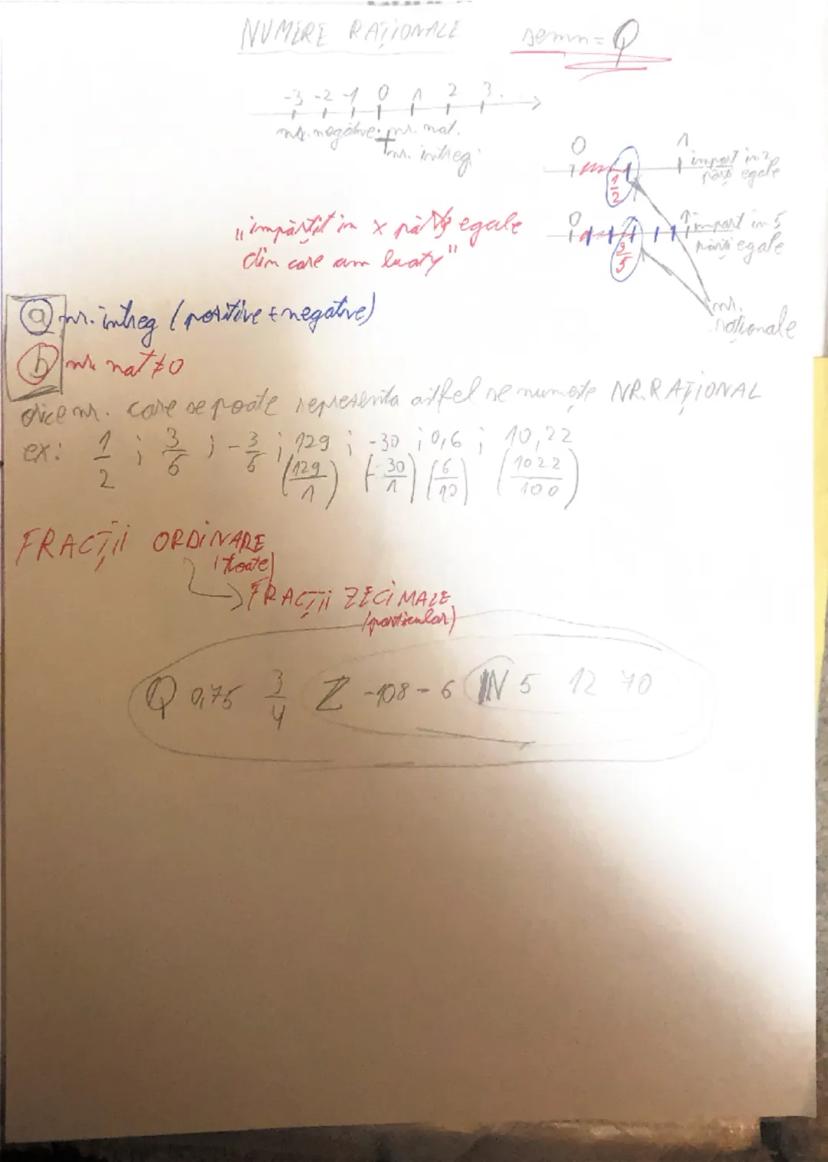 NUMERE RAȚIONALE semn = Q
-3 -2 -1 0 1 2 3
nr. negative nr. nat.
+
nr. întregi
0 1/2 1 împart in 2 părți egale
0 3/5 1 împart in 5 părți egale
nr. raționale
„împărțit in x părți egale
din care am luat y"
a nr. intreg (pozitive + negative)
b nr. nat ≠ 0
orice nr. care se poate reprezenta astfel se numește NR. RAȚIONAL
ex: 1/2 ; 3/6 ; -3/6 ; 129 ; -30 ; 0,6 ; 10,22
(129/1) (-30/1) (6/10) (1022/100)
FRACȚII ORDINARE
(toate)
FRACȚII ZECIMALE
(particular)
Q 0,75 3/4 Z -108 - 6 N 5 12 70